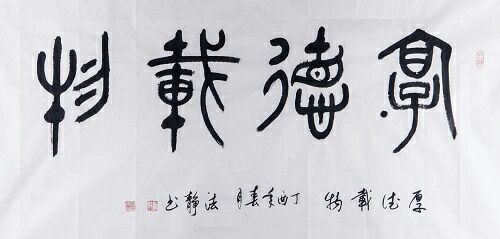 厚德載物
厚德載物 丁酉年春月 法静书